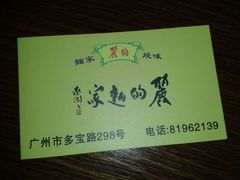 麗的
麵家 燒味
麗的麵家
广州市多宝路298号 电话:81962139